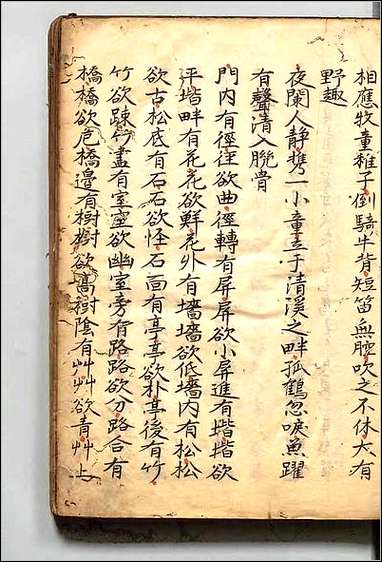 相應牧童稚子倒騎牛背短笛無腔吹之不休大有
野趣
夜闌人靜携一小童立于清溪之畔孤鶴忽唳魚躍
有聲清入肌骨
門內有徑徑欲曲徑轉有屏屏欲小屏進有堦堦欲
平堦畔有花花欲鮮花外有墻墻欲低墻內有松松
欲古松底有石石欲怪石面有亭亭欲朴亭後有竹
竹欲踈竹盡有室室欲幽室旁有路路欲分路合有
橋橋欲危橋邊有樹樹欲高樹陰有艸艸欲青艸上